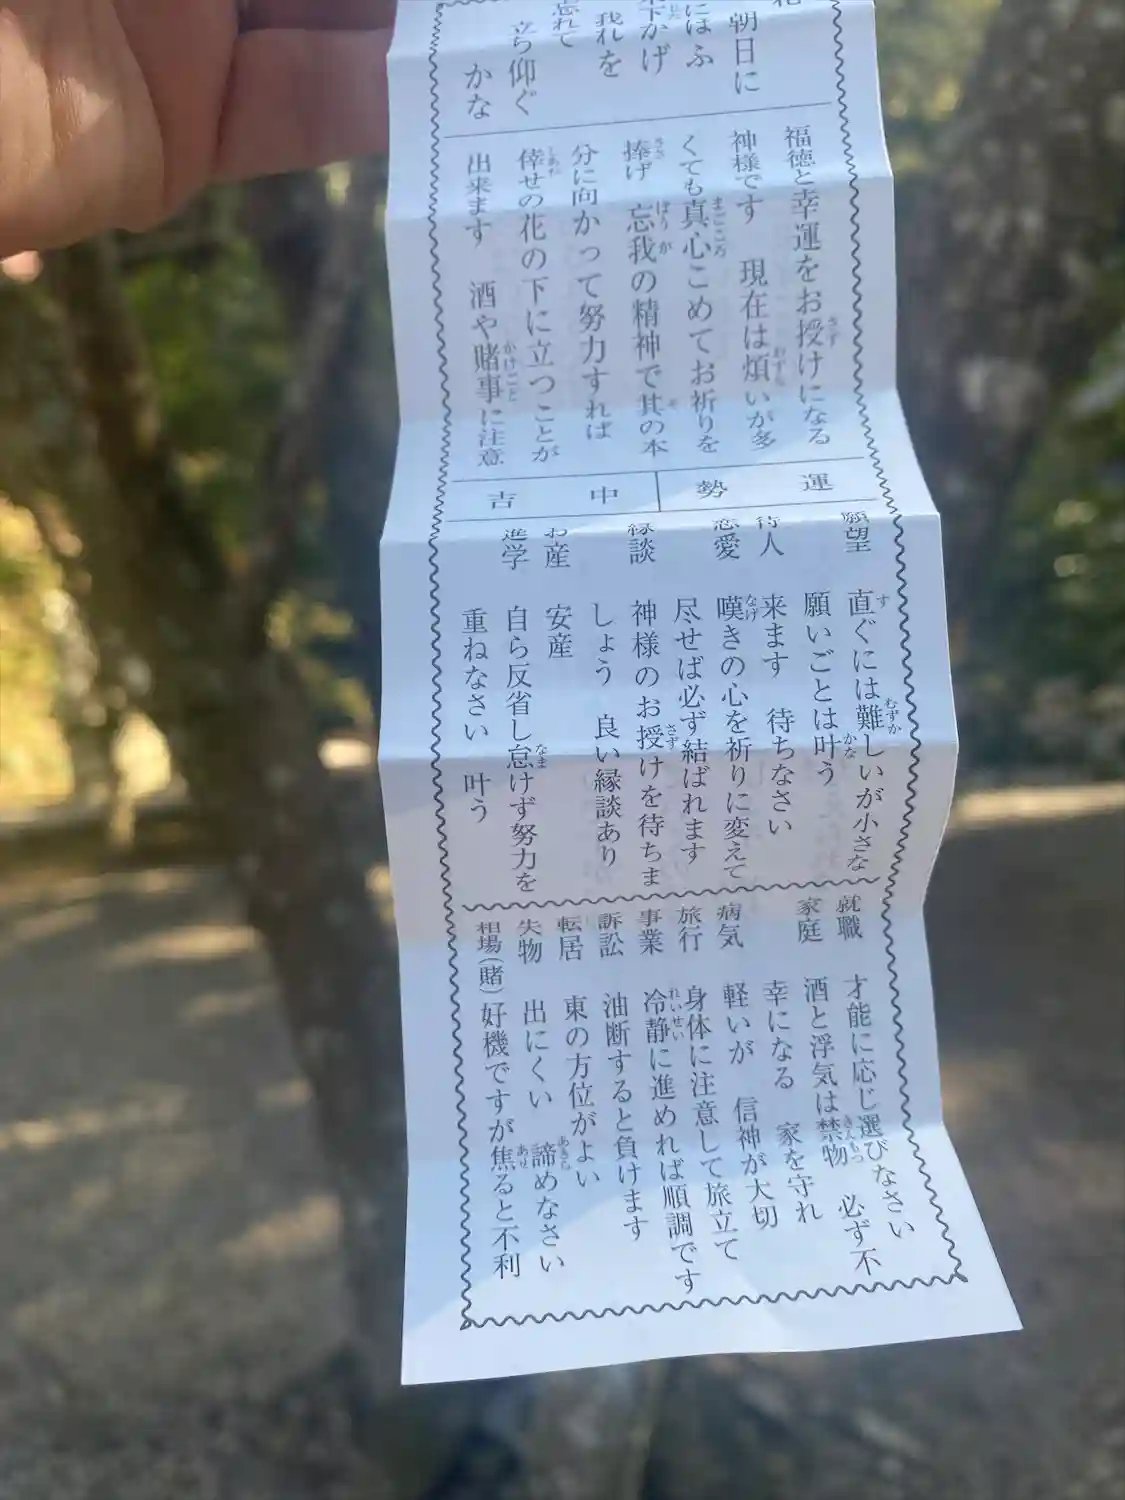 朝日に
にほふ
下かげ
我れを
忘れて
立ち仰ぐ
かな
福徳と幸運をお授けになる
神様です　現在は煩いが多
くても真心こめてお祈りを
捧げ　忘我の精神で其の本
分に向かって努力すれば
倖せの花の下に立つことが
出来ます　酒や賭事に注意
運勢　中吉
願望　直ぐには難しいが小さな
願いごとは叶う
待人　来ます　待ちなさい
恋愛　嘆きの心を祈りに変えて
尽せば必ず結ばれます
縁談　神様のお授けを待ちま
しょう　良い縁談あり
お産　安産
進学　自ら反省し怠けず努力を
重ねなさい　叶う
就職　才能に応じ選びなさい
家庭　酒と浮気は禁物　必ず不
幸になる　家を守れ
病気　軽いが　信神が大切
旅行　身体に注意して旅立て
事業　冷静に進めれば順調です
訴訟　油断すると負けます
転居　東の方位がよい
失物　出にくい　諦めなさい
相場（賭）好機ですが焦ると不利